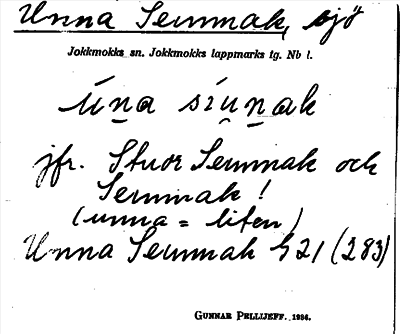 Unna Seunnak, sjö
Jokkmokks sn. Jokkmokks lappmarks tg. Nb l.
úna síunak
jfr. Stuor Seunnak och
Seunnak!
(unna = liten)
Unna Seunnak h 21 (283)
GUNNAR PELLIJEFF. 1936.